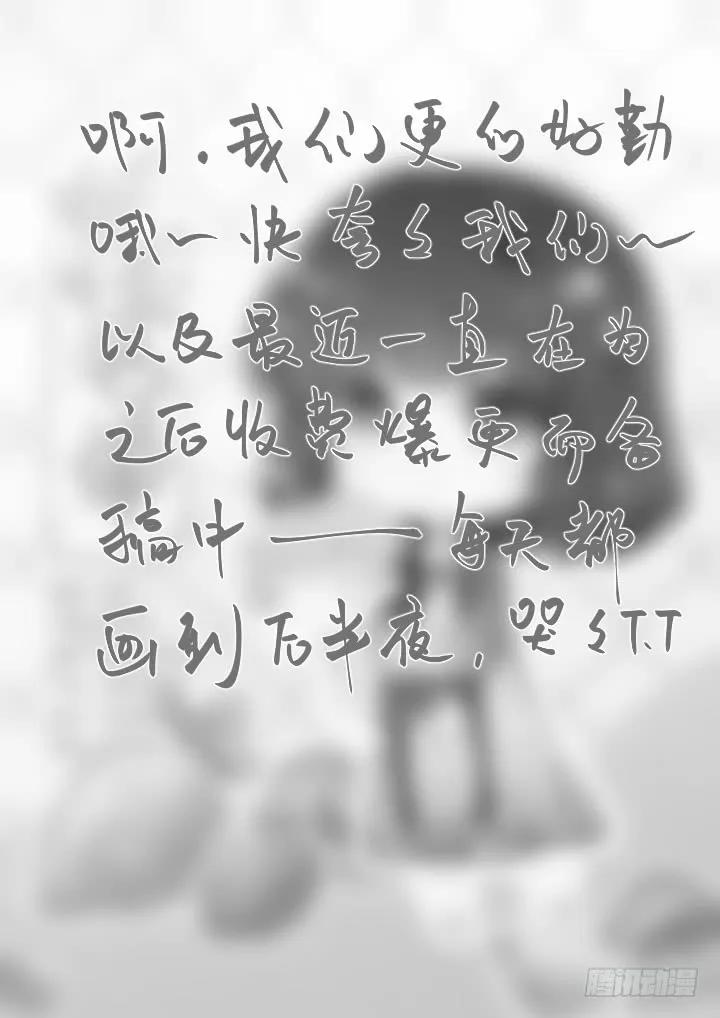 啊.我们更的好勤
哦~快夸夸我们~
以及最近一直在为
之后收费爆更而备
稿中——每天都
画到后半夜,哭哭T.T
腾讯动漫